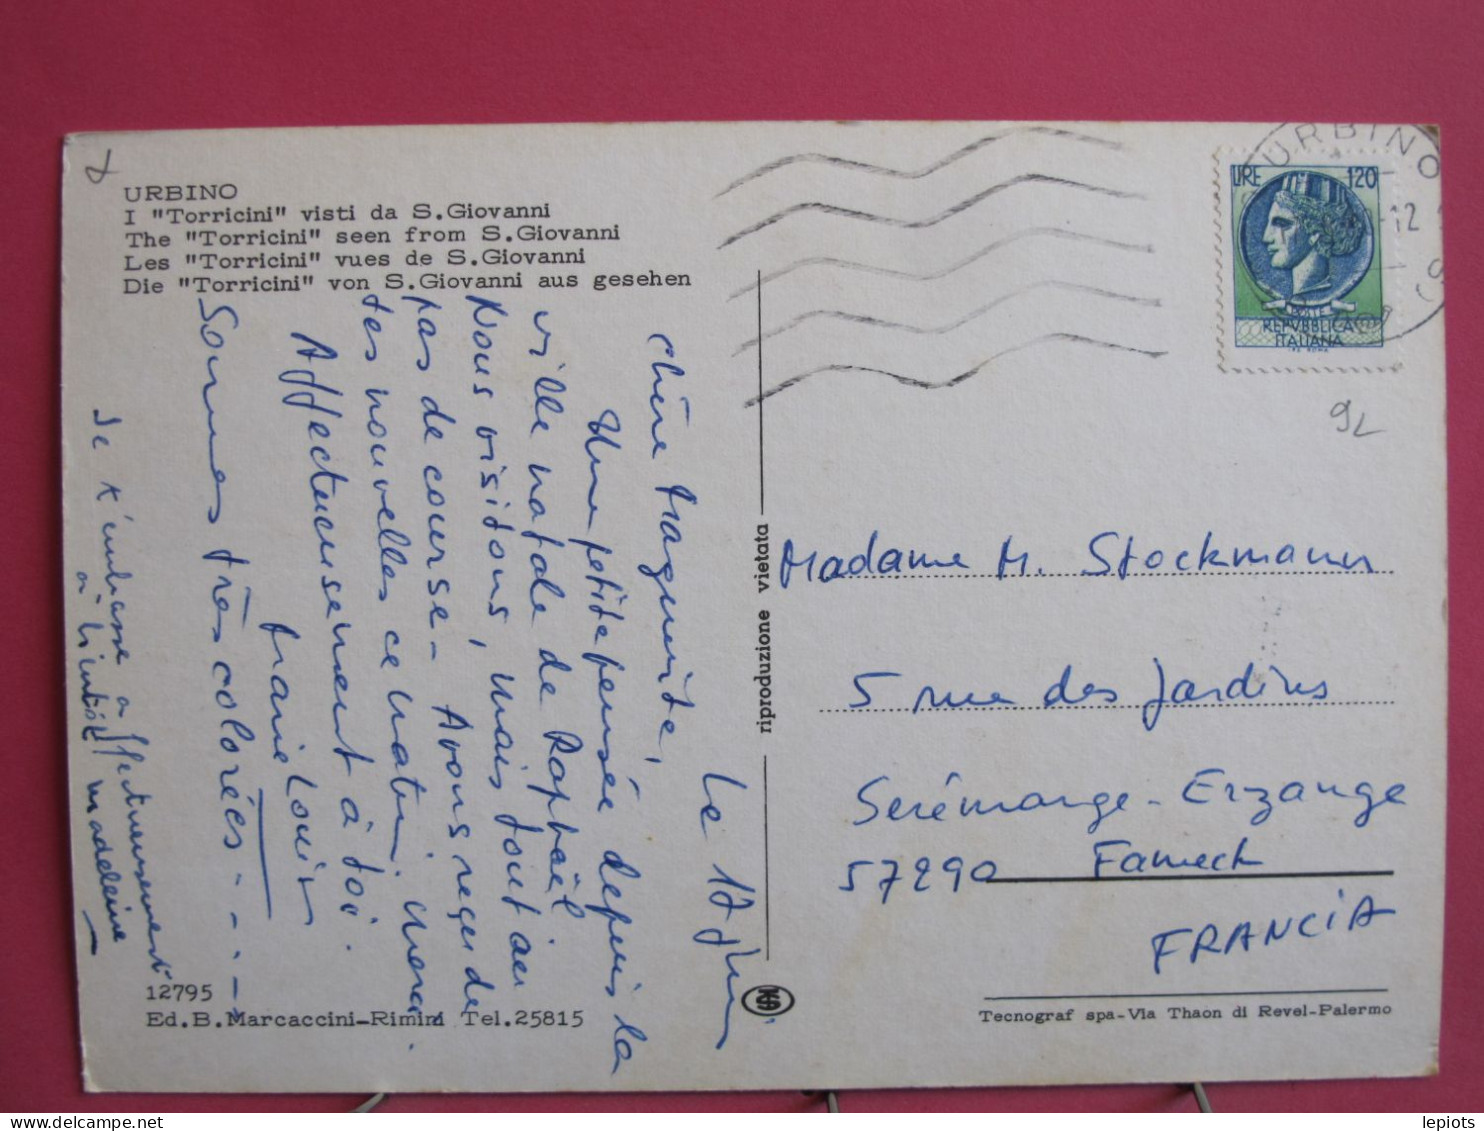 URBINO
I "Torricini" visti da S.Giovanni
The "Torricini" seen from S.Giovanni
Les "Torricini" vues de S.Giovanni
Die "Torricini" von S.Giovanni aus gesehen
Le 17 Juin
Chère Marguerite,
Une petite pensée depuis la
ville natale de Raphaël
Nous visitons, mais tout au
pas de course - Avons reçu de
tes nouvelles ce matin, merci.
Affectueusement à toi.
Marie Louise
Sommes très colorées - - - -
Je t'embrasse affectueusement
Madeleine
12795
Ed.B.Marcaccini-Rimini Tel.25815
riproduzione vietata
URBINO
12
LIRE 120
REPVBBLICA
ITALIANA
92
Madame M. Stockmann
5 rue des Jardins
Serémange-Erzange
57290 Fameck
FRANCIA
Tecnograf spa-Via Thaon di Revel-Palermo
lepiots